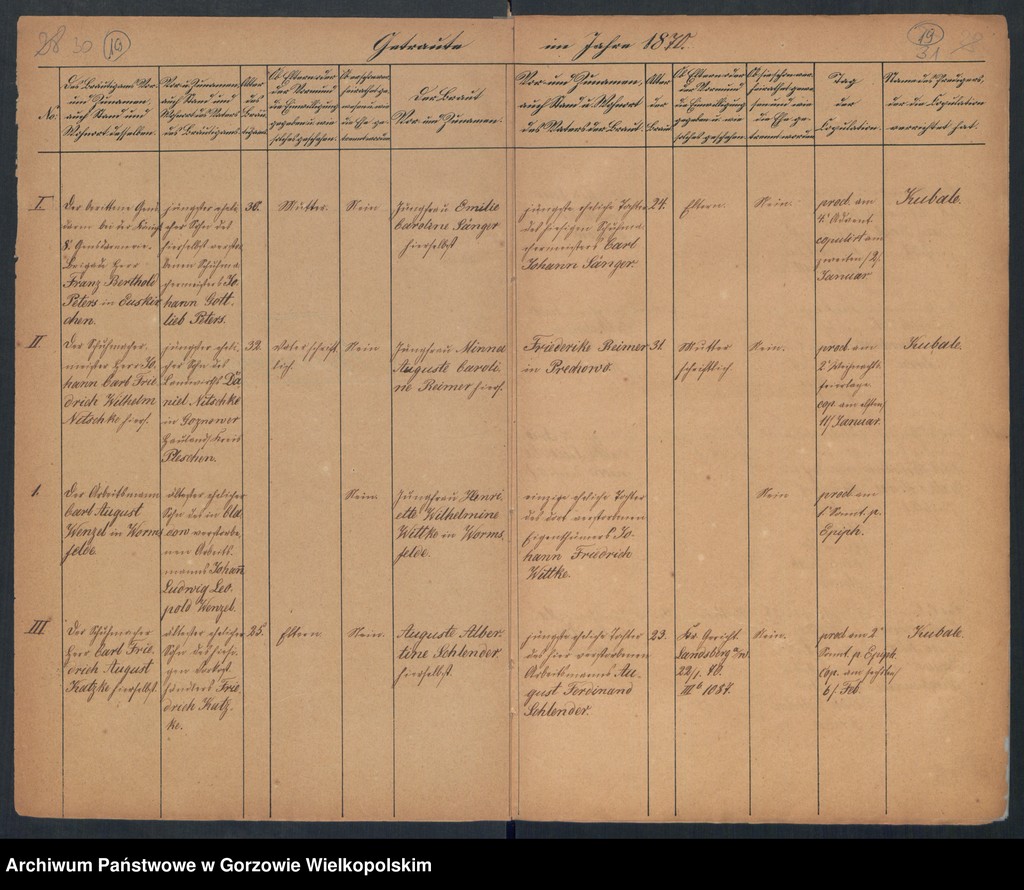 28 30 19
19 31 28
Getraute im Jahre 1870.
No.
Des Bräutigams Vor-
und Zunamen,
auch Stand und
Wohnort desselben.
Vor- u. Zunamen,
auch Stand und
Wohnort des Vaters
des Bräutigams.
Alter
des
Bräu-
tigams
Ob Eltern oder
der Vormund
die Einwilligung
gegeben u. wie
solches geschehen.
Der Braut
Vor- und Zunamen.
Vor- und Zunamen,
auch Stand u. Wohnort
des Vaters der Braut.
Alter
der
Braut
Ob Eltern oder
der Vormund
die Einwilligung
gegeben u. wie
solches geschehen.
Tag
der
Copulation.
Name des Predigers,
der die Copulation
verrichtet hat.
I.
Der berittene Gens
darm bei der Königl
8. Gensdarmerie-
Brigade Herr
Franz Berthold
Peters in Euskir
chen.
jüngster eheli-
cher Sohn des
hierselbst verstor
benen Schuhma
chermeisters Jo-
hann Gott-
lieb Peters.
30.
Mutter.
Nein.
Jungfrau Emilie
Caroline Sänger
hierselbst
jüngste eheliche Tochter
des hiesigen Schuhma
chermeisters Carl
Johann Sänger.
24.
Eltern.
Nein.
procl. am
4. Advent.
copulirt am
zweiten /2/
Januar
Kubale.
II
Der Schuhmacher-
meister Herr Jo
hann Carl Frie
drich Wilhelm
Nitschke hiers.
jüngster eheli-
cher Sohn des
Landwirths Da
niel Nitschke
in
Hauland, Kreis
Pleschen.
32.
Vater schrift
lich.
Nein
Jungfrau Minna
Auguste Caroli
ne Reimer hiers.
Friederike Reimer
in
31.
Mutter
schriftlich.
Nein.
procl. am
2. Weihnachts
feiertage
cop. am elften
11/ Januar.
Kubale.
1.
Der Arbeitsmann
Carl August
Wenzel in Worms
felde.
ältester ehelicher
Sohn des in
verstorbe
nen Arbeits
manns Johann
Ludwig Leo
pold Wenzel.
Nein.
Jungfrau Henri
ette Wilhelmine
Wittke in Worms
felde.
einzige eheliche Tochter
des dort verstorbenen
Eigenthümers Jo-
hann Friedrich
Wittke.
Nein
procl. am
1. Sonnt. p.
Epiph.
III
Der Schuhmacher
Herr Carl Frie
drich August
Katzke hierselbst.
ältester ehelicher
Sohn des hiesi
gen
händlers Frie
drich Katz-
ke.
25.
Eltern.
Nein.
Auguste Alber-
tine Schlender
hierselbst.
jüngste eheliche Tochter
des hier verstorbenen
Arbeitsmanns Au-
gust Ferdinand
Schlender.
23.
Kr. Gericht
Landsberg a/W.
22/1. 70.
1087.
Nein.
procl am 2.
Sonnt. p. Epiph.
cop. am sechsten
6/ Feb.
Kubale.
Archiwum Państwowe w Gorzowie Wielkopolskim